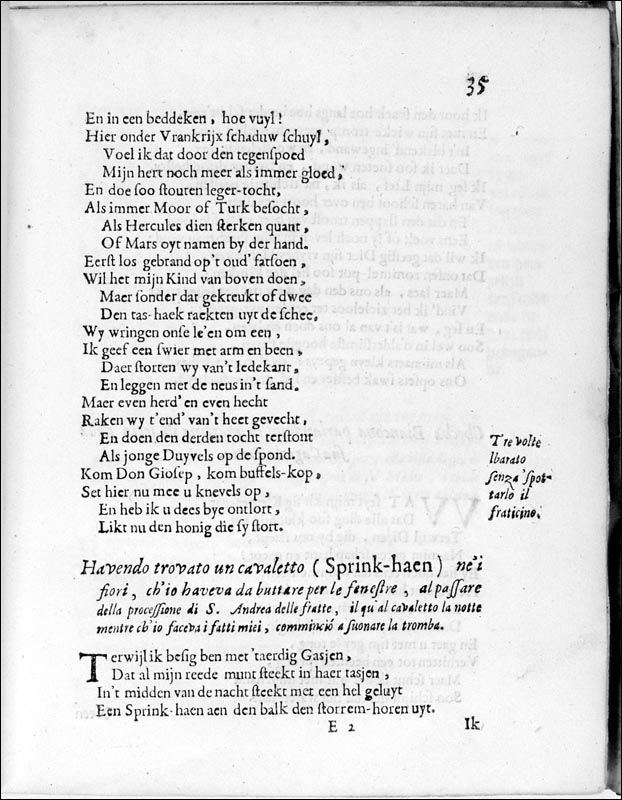 35
En in een beddeken, hoe vuyl!
Hier onder Vrankrijx schaduw schuyl,
Voel ik dat door den tegenspoed
Mijn hert noch meer als immer gloed,
En doe soo stouten leger-tocht,
Als immer Moor of Turk besocht,
Als Hercules dien sterken quant,
Of Mars oyt namen by der hand.
Eerst los gebrand op't oud' fatsoen,
Wil het mijn Kind van boven doen,
Maer sonder dat gekreukt of dwee
Den tas-haek raekten uyt de schee.
Wy wringen onse le'en om een,
Ik geef een swier met arm en been,
Daer storten wy van't ledekant,
En leggen met de neus in't sand.
Maer even herd' en even hecht
Raken wy t'end' van't heet gevecht,
En doen den derden tocht terstont
Als jonge Duyvels op de spond.
Kom Don Giosep, kom buffels-kop,
Set hier nu mee u knevels op,
En heb ik u dees bye ontlort,
Likt nu den honig die sy stort.
Tre volte
lbarato
senza 'spot-
tarlo il
fraticino.
Havendo trovato un cavaletto (Sprink-haen) ne'i
fiori, ch'io haveva da buttare per le fenestre, al passare
della processione di S. Andrea delle fratte, il qu'al cavaletto la notte
mentre ch'io faceva i fatti miei, comminciò a suonare la tromba.
Terwijl ik besig ben met 'taerdig Gasjen,
Dat al mijn reede munt steekt in haer tasjen,
In't midden van de nacht steekt met een hel geluyt
Een Sprink-haen aen den balk den storrem-horen uyt.
E 2
Ik